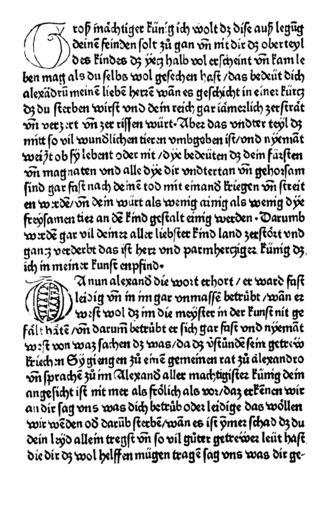 Groß mächtiger künig ich wolt dz dise auß legūg
deinē feinden solt zů gan vn̄ nit dir dz oberteyl
des kindes dz yecz halb vol erscheint vn̄ kam le
ben mag als du selbs wol gesechen hast/das bedeüt dich
alexādrū meinē lieben herrē wan es geschicht in einer kürcz
dz du sterben wirst vnd dein reich gar iämerlich zerströt
vn̄ verzert vn̄ zer rissen würt· Aber das vndter teyl dz
mitt so vil wundlichen tierrn vmbgeben ist/vnd nyemāt
weiſzt ob sy lebent oder nit/dye bedeüten dz dein fürsten
vn̄ magnaten vnd alle dye dir vndtertan vn̄ gehorsam
sind gar fast nach deinē tod mit einand kriegen vn̄ streit
en werdē/vn̄ dein würt als wenig ainig als wenig dye
freysamen tier an dē kind gestalt einig werden· Darumb
werdē gar vil deiner aller liebster kind land zerstört vnd
gancz verderbt das ist herr vnd parmhercziger künig dz
ich in meiner kunst empfind·
Da nun alexand die wort erhort/er ward fast
leidig vn̄ in im gar vnmasse betrübt/wan er
west wol dz im die meyster in der kunst nit ge
fält hätē/vn̄ darum̄ betrübt er sich gar fast vnd nyemāt
west von waz sachen dz was/da dz vstūndē sein getrew
kriechen Sy giengen zů einē gemeinen rat zů alexandro
vn̄ sprachē zů im Alexand aller machtigister künig dein
angesicht ist nit mer als frölich als vor/daz erkenen wir
an dir sag vns was dich betrüb oder leidige das wöllen
wir wenden od darüb sterben/wan es ist ymer schad dz du
dein leyd allein tregst vn̄ so vil gůter getrewer leüt hast
die dir dz wol helffen mügen tragē sag vns was dir ge-